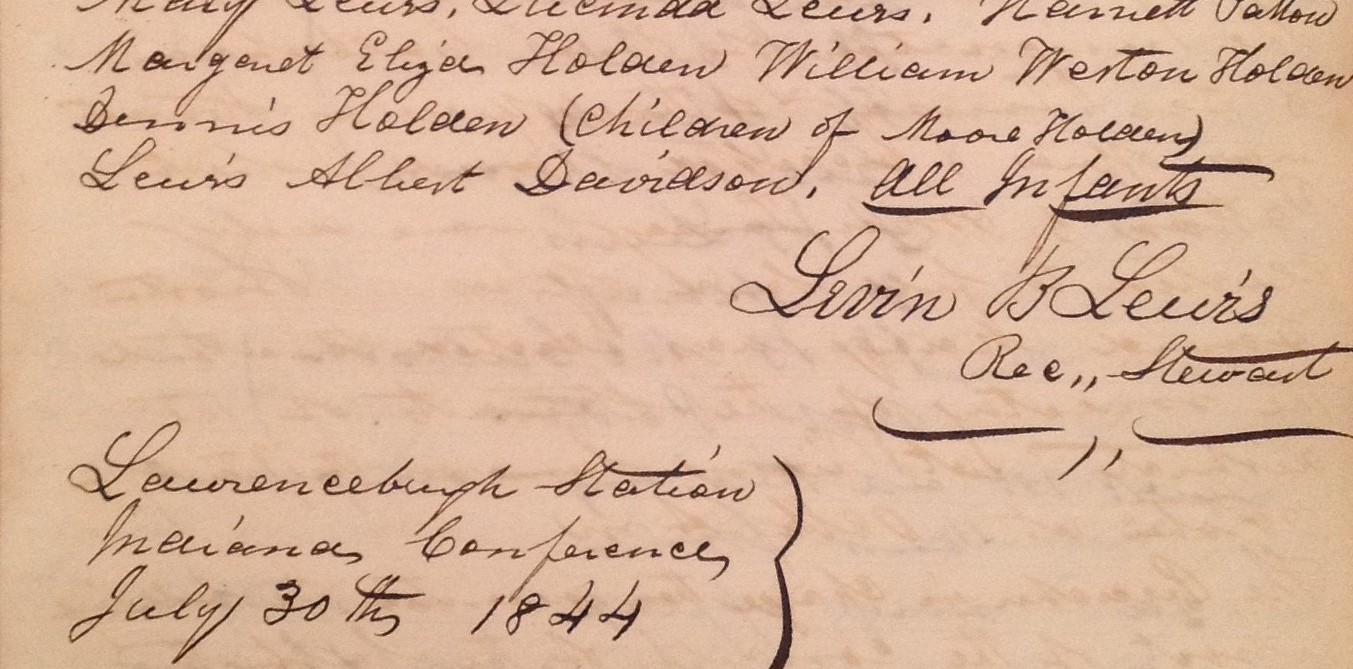 Mary Lewis, Lucinda Lewis, Harriett Patton
Margaret Eliza Holden William Weston Holden
Dennis Holden (Children of Moore Holden)
Lewis Albert Davidson, All Infants
Levin B Lewis
Rec,, Stewart
Lawrenceburgh Station
Indiana Conference
July 30th 1844